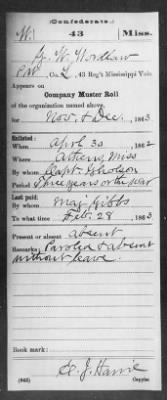 (Confederate.)
W. 43 Miss.
J. W. Wordlaw
Pvt, Co. L, 43 Reg't Mississippi Vols.
Appears on
Company Muster Roll
of the organization named above,
for Nov. & Dec., 1863
Enlisted:
When April 30, 1862
Where Athens, Miss
By whom Capt. Gholson
Period Three years or the war
Last paid:
By whom Maj Gibbs
To what time Feb. 28, 1863
Present or absent absent
Remarks: Paroled & absent
without leave.
Book mark:
(642) Copyist.